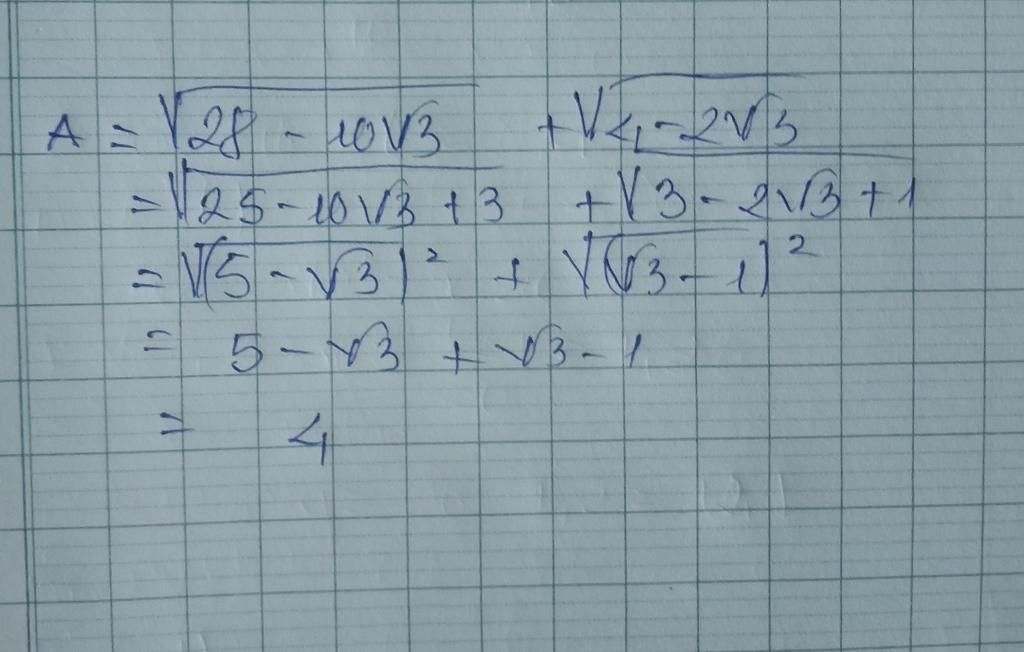 A = √(28 - 10√3) + √(4 - 2√3)
= √(25 - 10√3 + 3) + √(3 - 2√3 + 1)
= √(5 - √3)² + √(√3 - 1)²
= 5 - √3 + √3 - 1
= 4